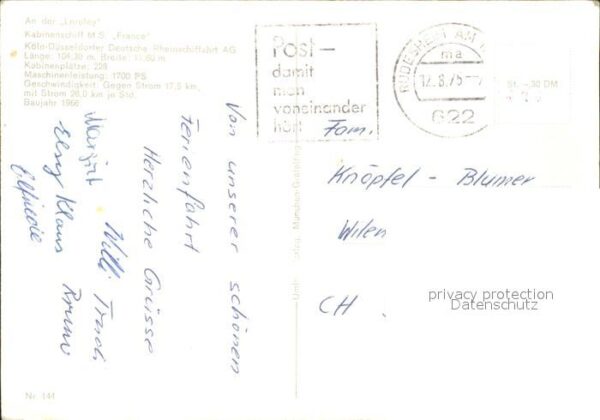 An der „Loreley"
Kabinenschiff M.S. „France"
Köln-Düsseldorfer Deutsche Rheinschiffahrt AG
Länge: 104,30 m, Breite: 11,60 m
Kabinenplätze: 228
Maschinenleistung: 1700 PS
Geschwindigkeit: Gegen Strom 17,5 km,
mit Strom 26,0 km je Std.
Baujahr 1966
Post –
damit
man
voneinander
hört
RÜDESHEIM AM
ma
12.8.75
622
DM
Von unserer schönen
Ferienfahrt
Herzliche Grüsse
Willi Trudi
Margrit
Elsy Klaus Bruno
Elfriede
Fam.
Knöpfel - Blumer
Wilen
CH.
privacy protection
Datenschutz
Nr. 144